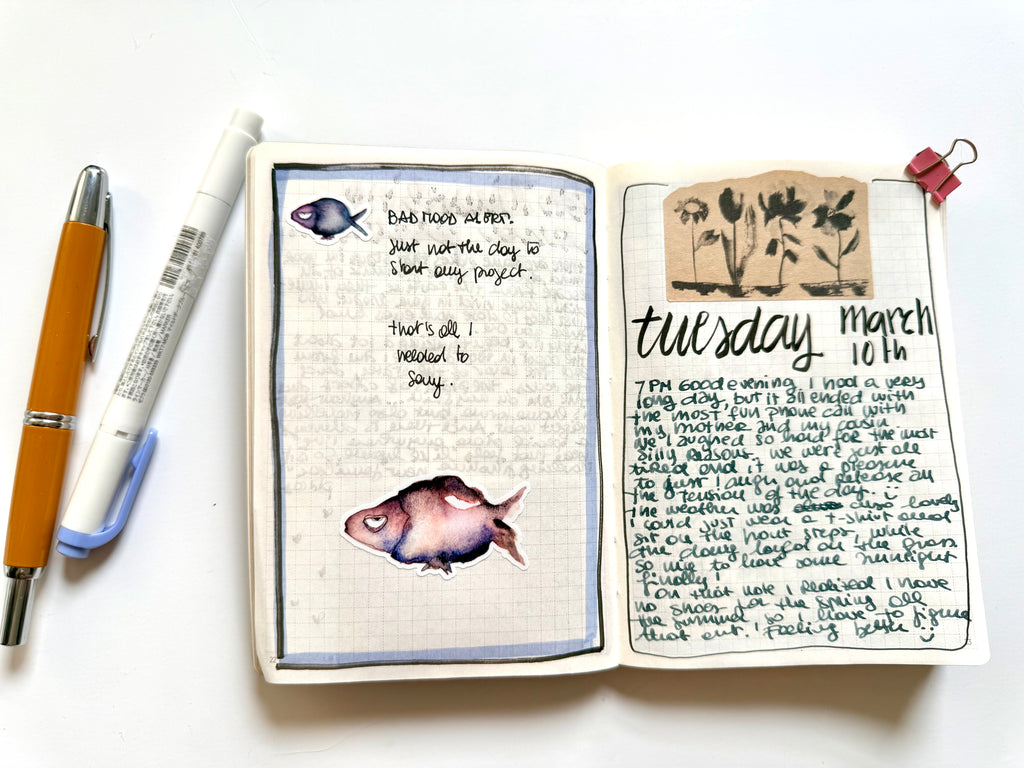 BAD MOOD ALERT.
Just not the day to
start any project.
that is all I
needed to
say.
tuesday
march
10th
7 PM Good evening, I had a very
long day, but it all ended with
the most fun phone call with
my mother and my cousin.
We laughed so hard for the most
silly reasons. we were just all
tired and it was a pleasure
to just laugh and release all
the tension of the day.
The weather was also lovely
I could just wear a t-shirt and
sit on the steps, while
the dog layed on the grass
so nice to have some sunlight
finally!
on that note I realized I have
no shoes for the spring all
the summer so I have to figure
that out. Feeling better
22